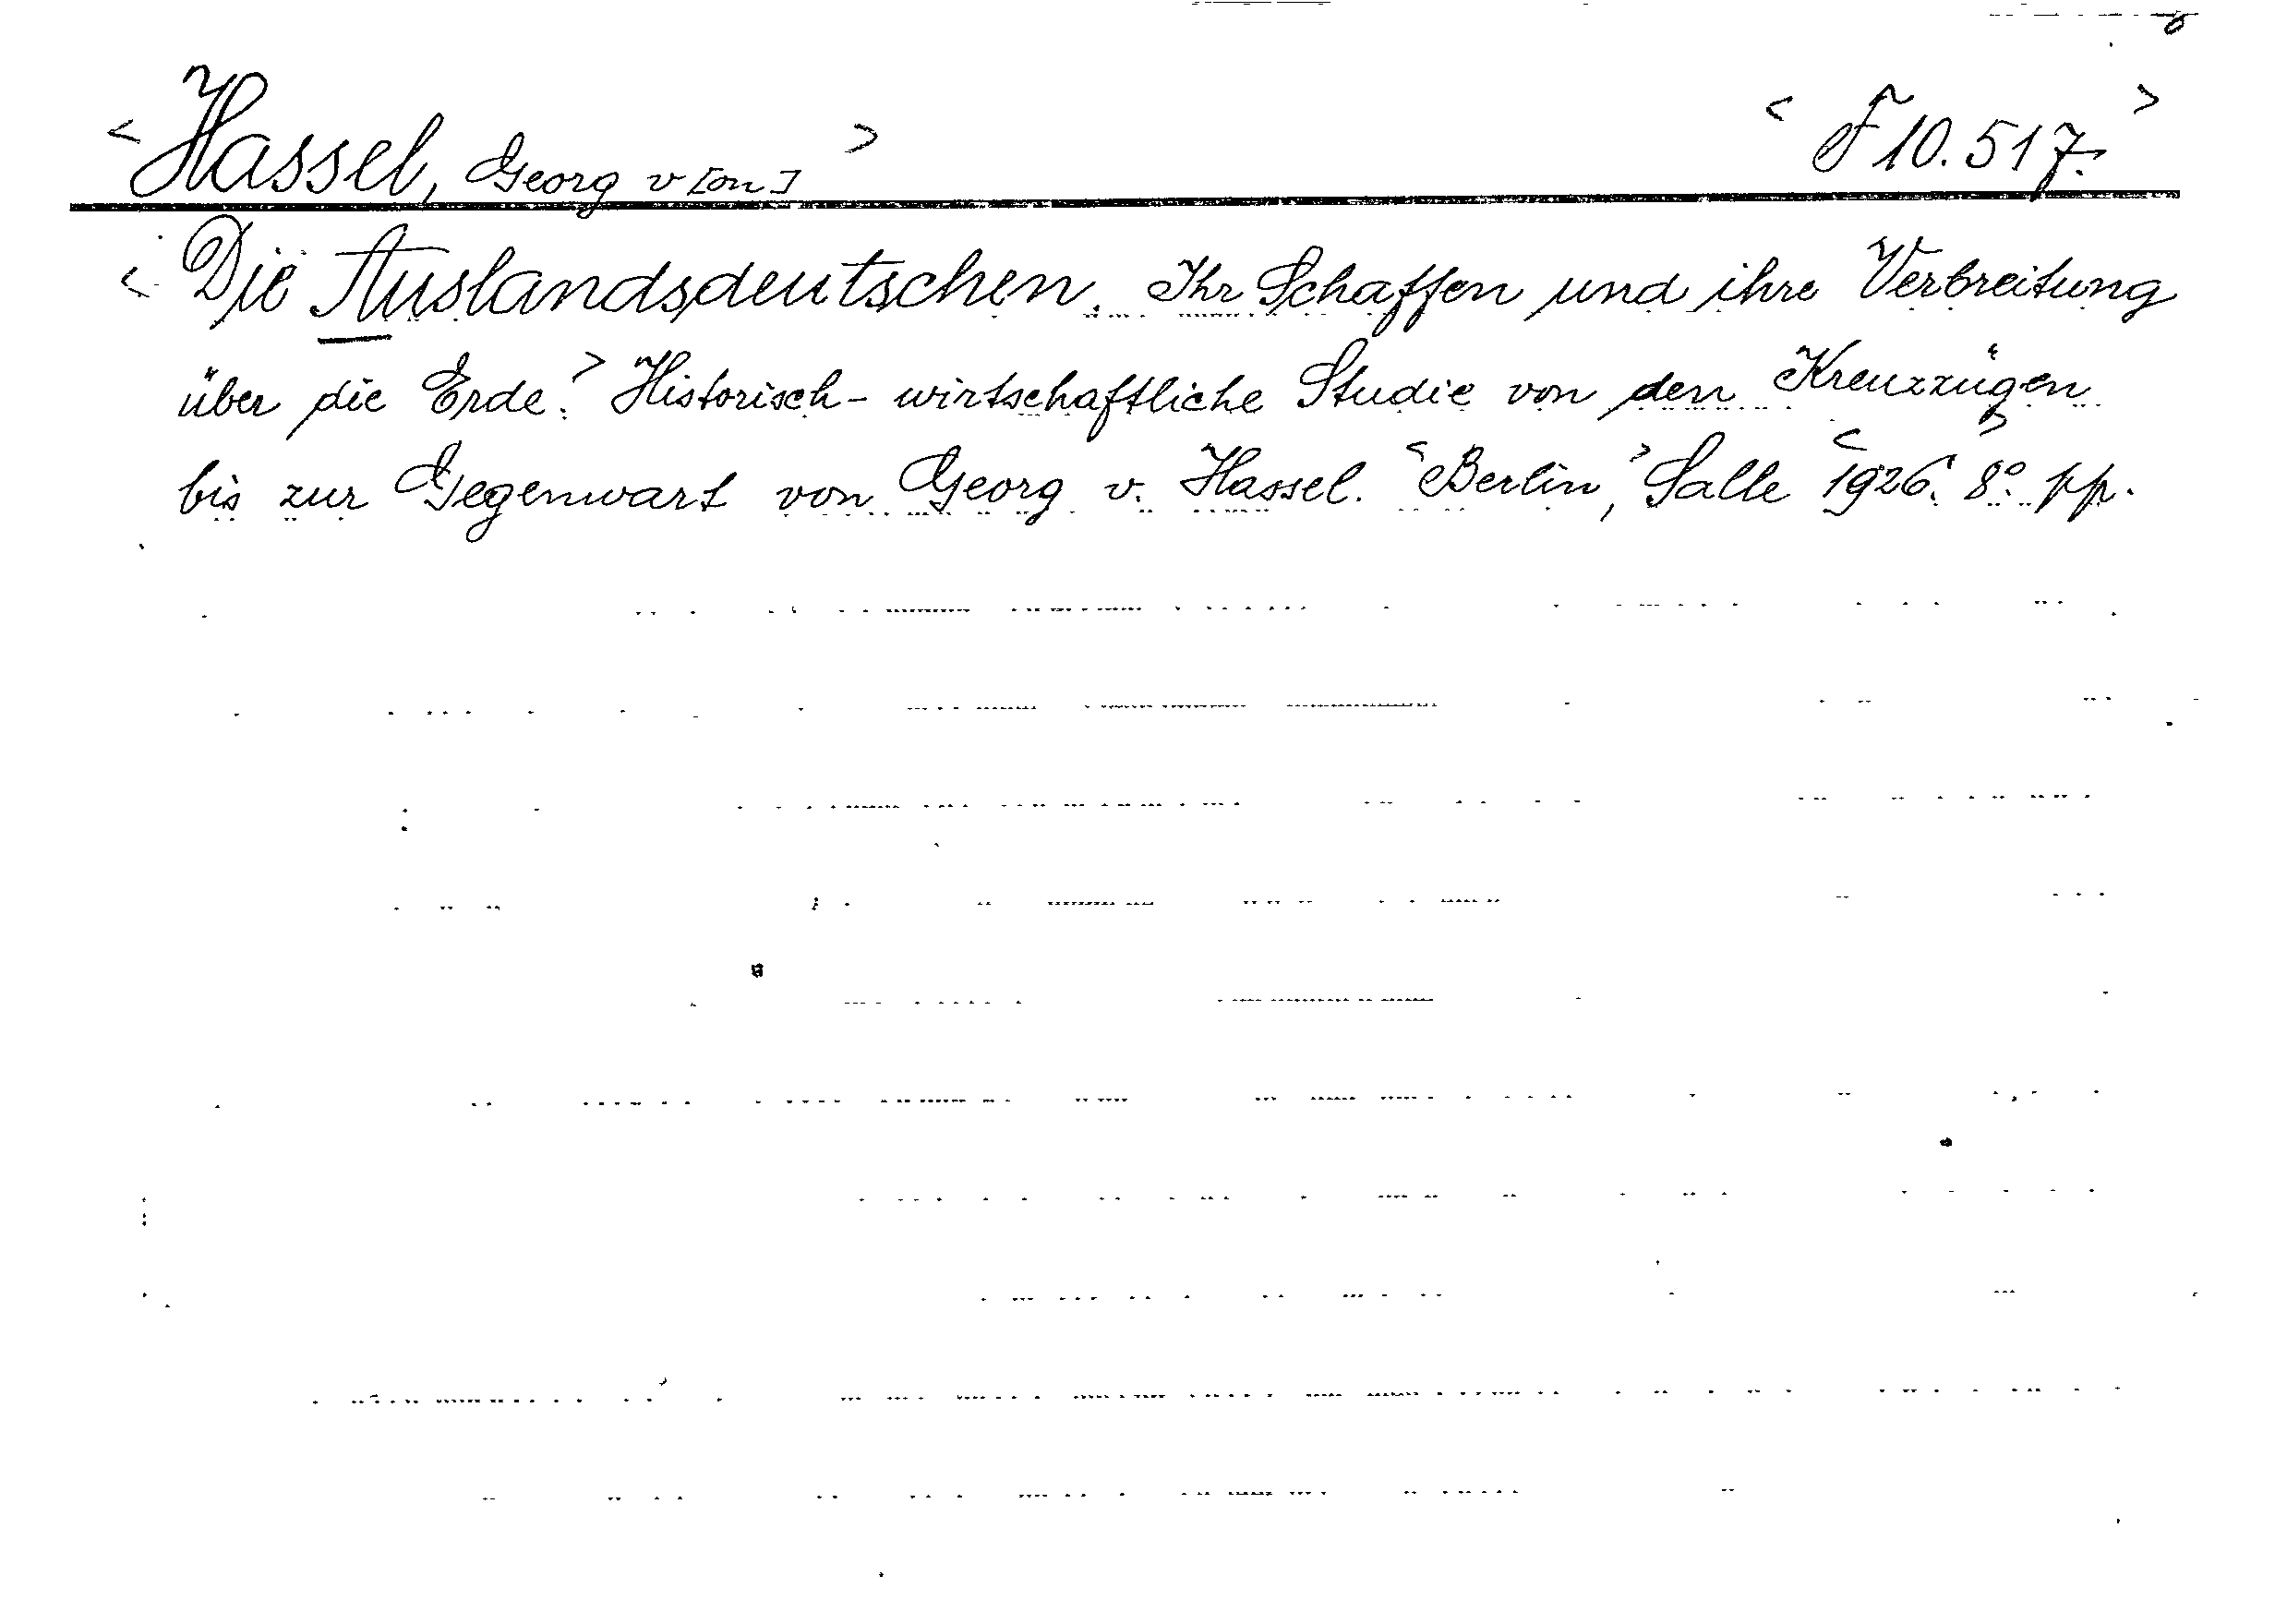 <Hassel, Georg v[on]> <F 10.517.>
<Die Auslandsdeutschen. Ihr Schaffen und ihre Verbreitung
über die Erde.> Historisch-wirtschaftliche Studie von den Kreuzzügen
bis zur Gegenwart von Georg v. Hassel. <Berlin,> Salle <1926.> 8° pp.